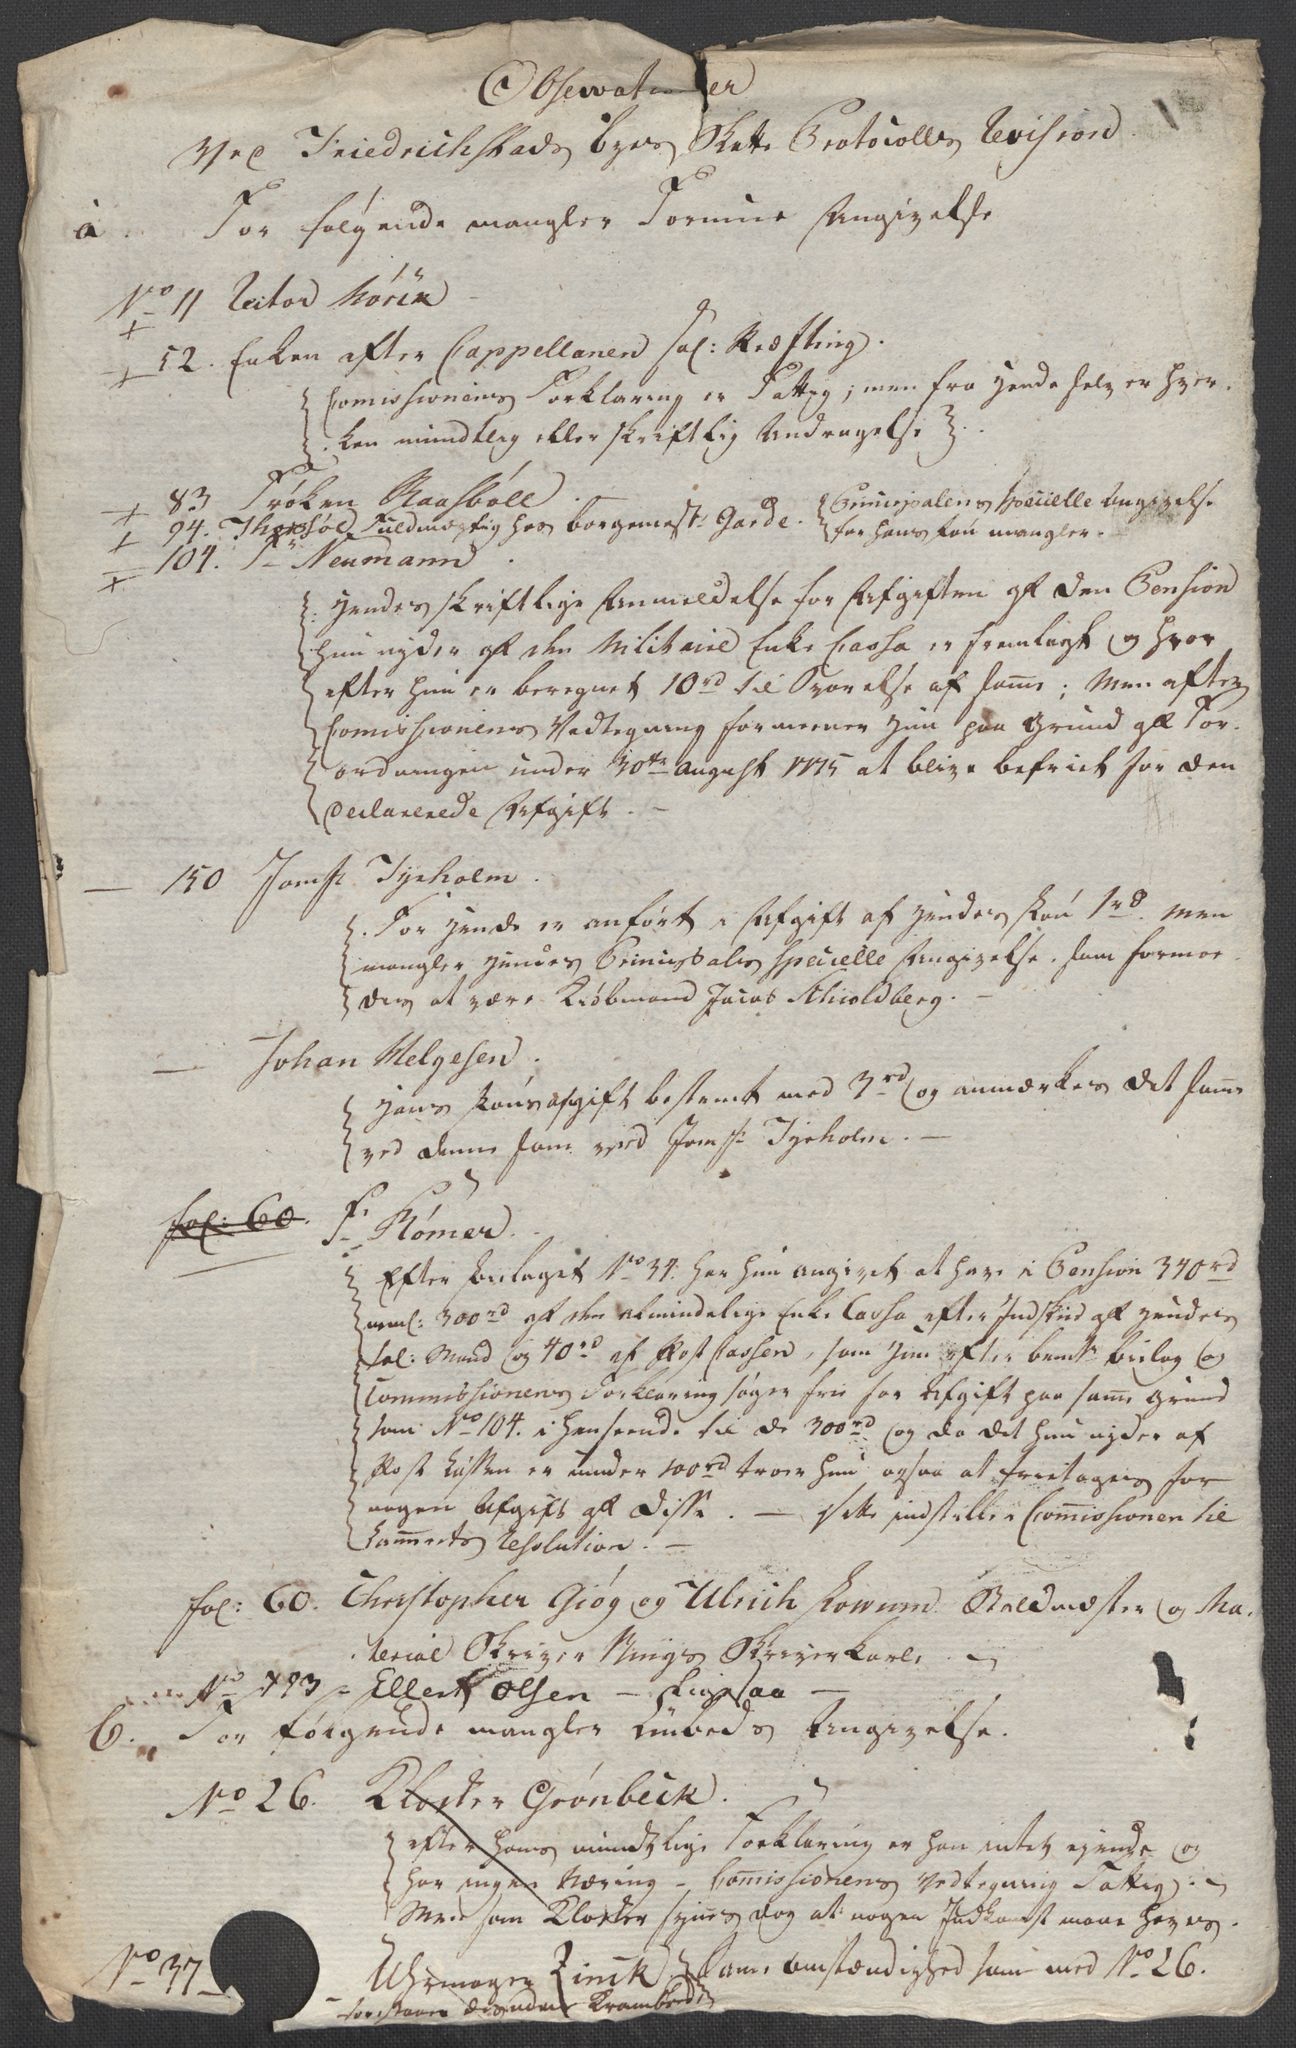 Observationer
Ved Friedrichstads byes Skatte Protocolls Revision
a. For følgende mangler Formue Angivelse
No 11 Rector Hörin
52. Enken efter Cappellanen Sal: Kræfting.
Comissionens Forklaring er Fattig, men fra hende selv er hver-
ken mundtlig eller skriftlig Andragelse
83 Frøken Raasbøll
94. Fuldmægtig hos borgemest: Garde. Principalens specielle Angivelse
for hans Løn mangler.
104. Fr Neumann
hendes skriftlige Anmeldelse for Afgiften af den Pension
hun nyder af den Militaire Enke Cassa er fremlagt og hvor
efter hun er beregnet 10rd til Svarelse af samme; Men efter
Comissionens Vedtegning formener hun paa Grund af For-
ordningen under 30te August 1775 at blive befriet for den
declarerede Afgift.
150 Jomfr Tyrholm.
For hende er anført i Afgift af hendes Løn 1rd. men
mangler hendes Principals specielle Angivelse, som formoe-
des at være Kiøbmand Jacob Thioldberg.
Johan Helgesen.
hans Lønsafgift bestemt med 3rd og anmærkes det samme
ved denne som ved Jomfr Tyrholm.
fol: 60. Fr Rømer.
Efter bilaget No 34. har hun angivet at have i Pension 340rd
neml: 300rd af den almindelige Enke Cassa efter Indskud af hendes
sal: Mand og 40rd af Post Cassen, som hun efter bemte bilag og
Commissionens Forklaring søger frie for Afgift paa samme grund
som No 104. i henseende til de 300rd og da det hun nyder af
Post Cassen er under 100rd troer hun ogsaa at fritages for
nogen Afgift af disse. — Dette indstiller Comissionen til
Kammerets Resolution.
fol: 60. Christopher Giøg og Ulrich Staldmester og Ma-
terial Skriver Skriverkarle
No 193 - Ellert Olsen — ligesaa —
b. For følgende mangler Næringsbrugs Angivelse.
No 26. Klokker Grønbeck.
efter hans mundtlige Forklaring er han intet eiende og
har ingen Næring - Comissionens Vedtegning Fattig.
Men som Klokker synes dog at nogen Indkomst maae haves.
No 37 Uhrmager Zinck Samme omstændighed som med No 26.
forestaaer desuden Krambod